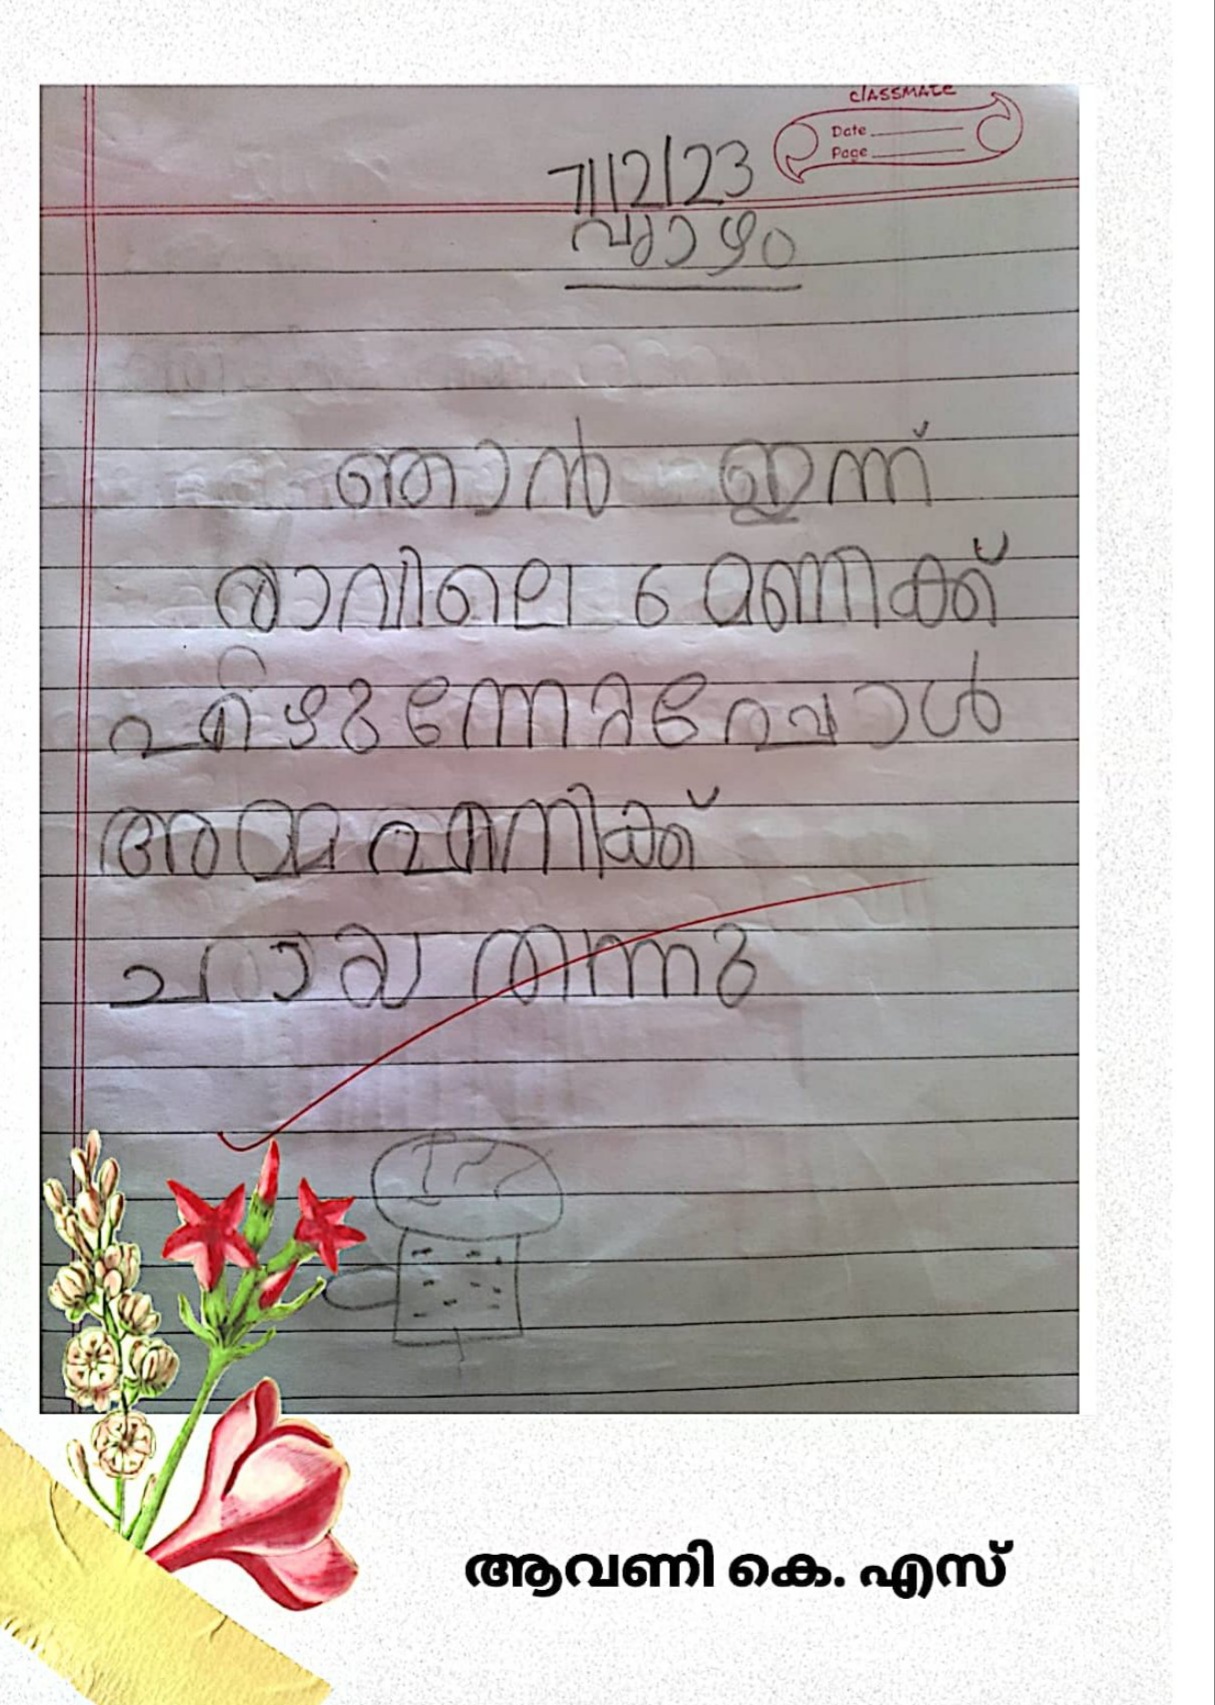 classmate
Date
Page
7/12/23
വ്യാഴം
ഞാൻ ഇന്ന്
രാവിലെ 6 മണിക്ക്
എഴുന്നേറ്റപ്പോൾ
അമ്മ എനിക്ക്
ചായ തന്നു
ആവണി കെ. എസ്